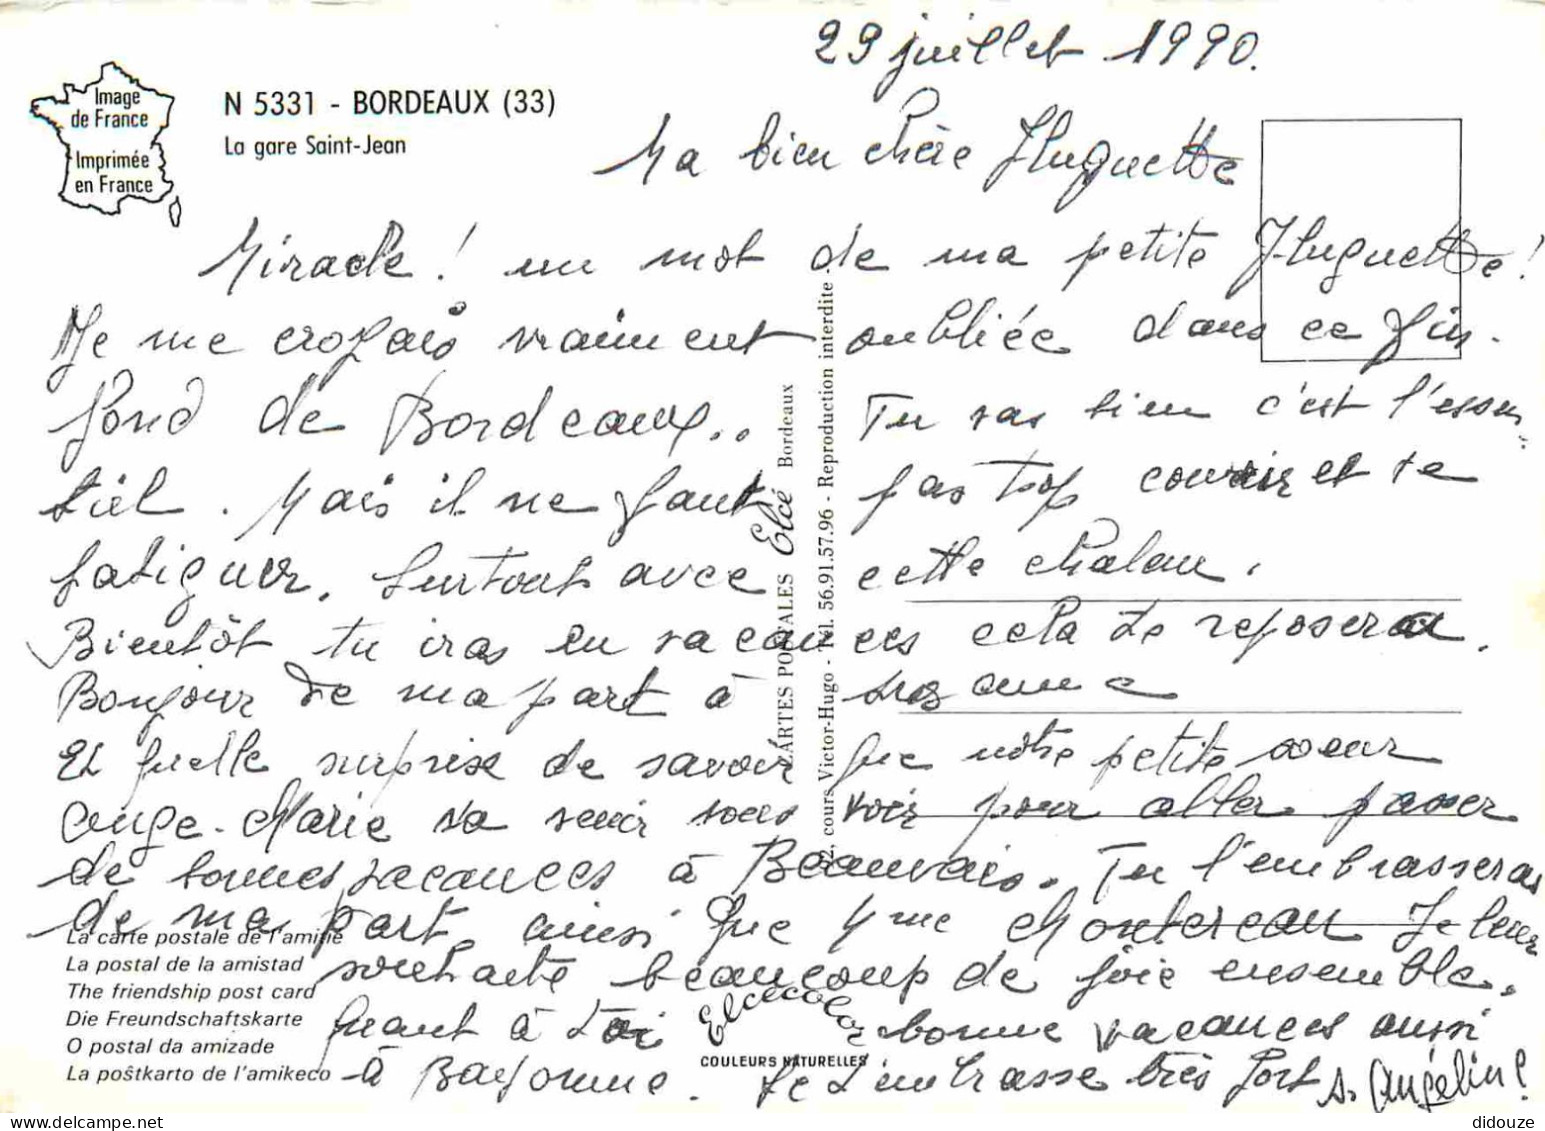 29 juillet 1990.
Image
de France
Imprimée
en France
N 5331 - BORDEAUX (33)
La gare Saint-Jean
Ma bien chère Huguette
Miracle ! un mot de ma petite Huguette !
Je me croyais vraiment oubliée dans ce fin-
fond de Bordeaux.. Tu vas bien c'est l'essen
tiel. Mais il ne faut pas trop courir et te
fatiguer. Surtout avec cette chaleur.
Bientôt tu iras en vacances cela te reposera.
Bonjour de ma part à Suzanne
Et quelle surprise de savoir que notre petite soeur
Ange-Marie va venir vous voir pour aller passer
de bonnes vacances à Beauvais. Tu l'embrasseras
de ma part, ainsi que Mme Montereau Je leur
souhaite beaucoup de joie ensemble.
quant à toi bonne vacances aussi
à Bayonne. Je t'embrasse très fort S. Angéline
La carte postale de l'amitié
La postal de la amistad
The friendship post card
Die Freundschaftskarte
O postal da amizade
La poŝtkarto de l'amikeco
CARTES POSTALES Elcé Bordeaux
92, cours Victor-Hugo - Tél. 56.91.57.96 - Reproduction interdite -
Elcécolor
COULEURS NATURELLES
didouze